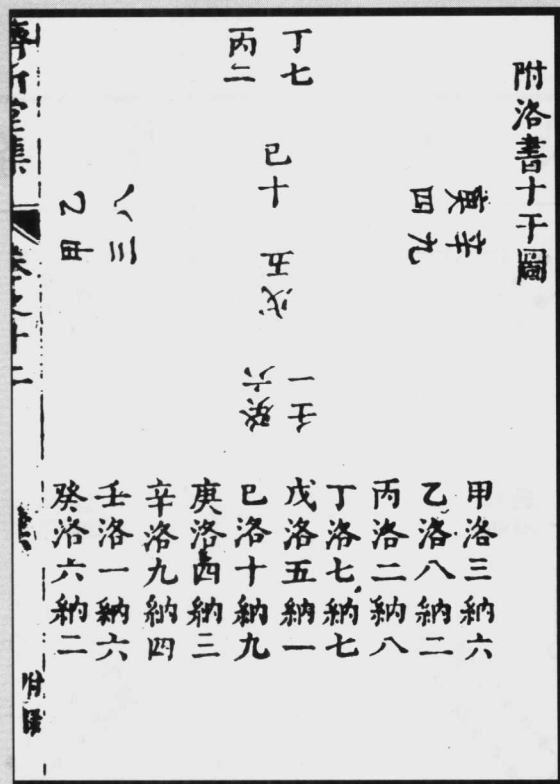 附洛書十干圖
辛九
庚四
丁七
丙二
己十
戊五
壬一
癸六
甲三
乙八
甲洛三納六
乙洛八納二
丙洛二納八
丁洛七納七
戊洛五納一
巳洛十納九
庚洛四納三
辛洛九納四
壬洛一納六
癸洛六納二
集
卷之十二